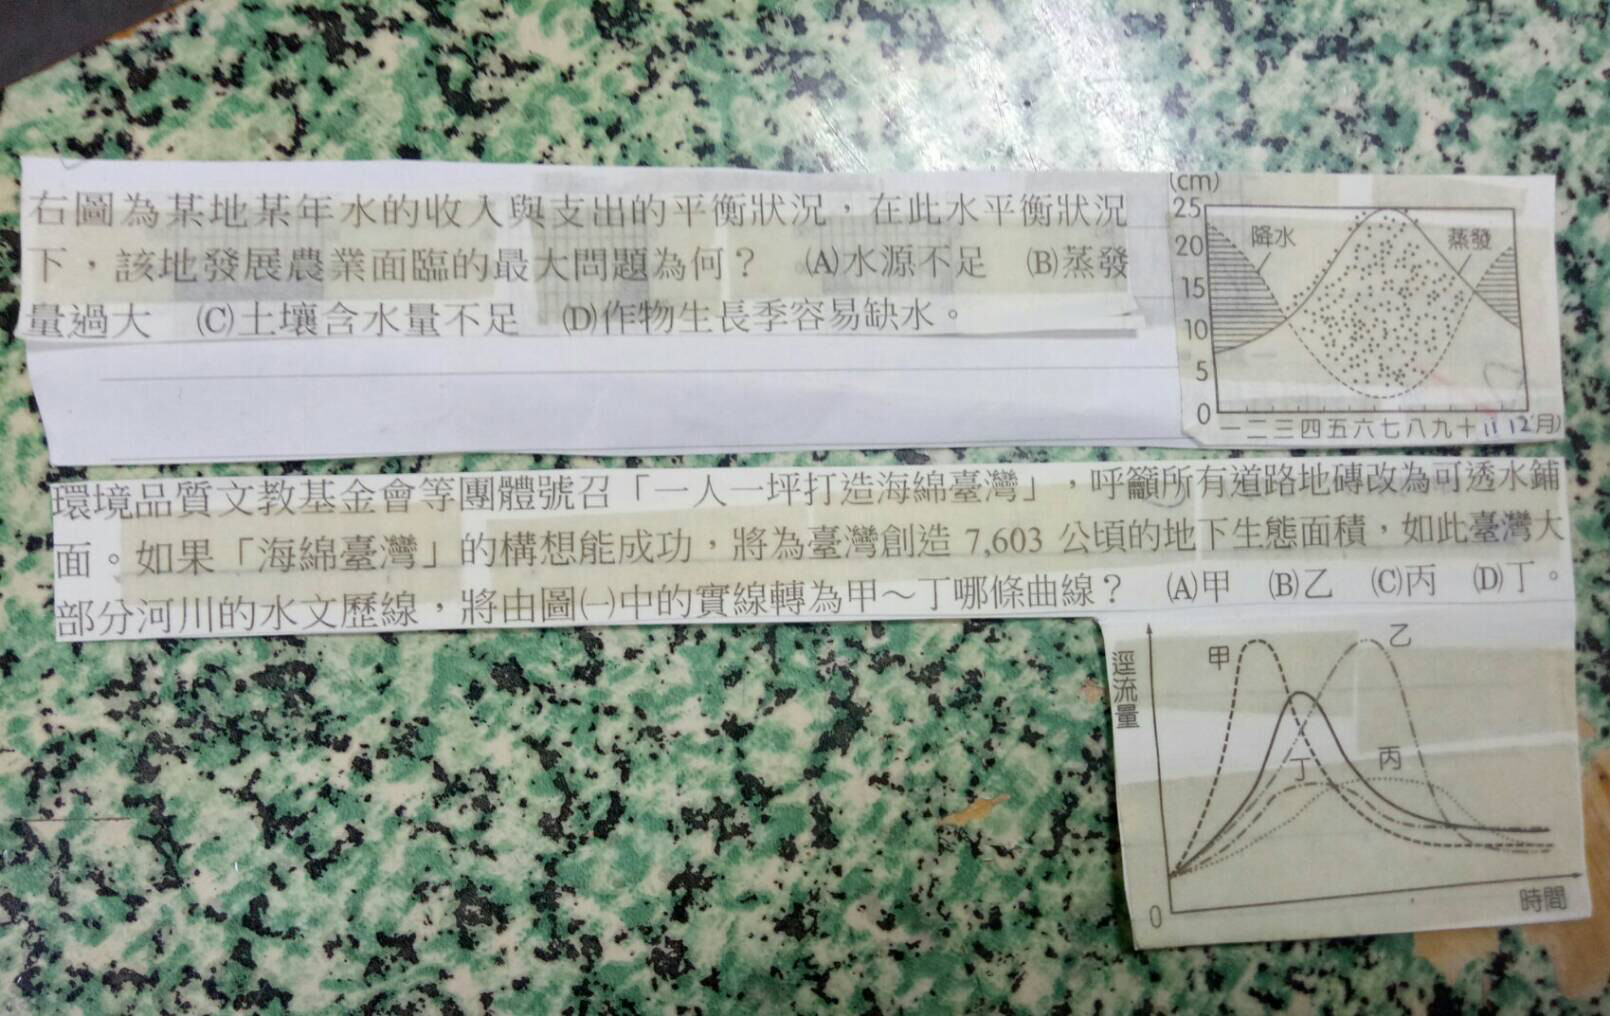 右圖為某地某年水的收入與支出的平衡狀況，在此水平衡狀況
下，該地發展農業面臨的最大問題為何？　(A)水源不足　(B)蒸發
量過大　(C)土壤含水量不足　(D)作物生長季容易缺水。
(cm)
25
20
15
10
5
0
降水
蒸發
一二三四五六七八九十 11 12 月)
環境品質文教基金會等團體號召「一人一坪打造海綿臺灣」，呼籲所有道路地磚改為可透水鋪
面。如果「海綿臺灣」的構想能成功，將為臺灣創造 7,603 公頃的地下生態面積，如此臺灣大
部分河川的水文歷線，將由圖㈠中的實線轉為甲～丁哪條曲線？　(A)甲　(B)乙　(C)丙　(D)丁。
逕流量
甲
乙
丙
丁
0
時間